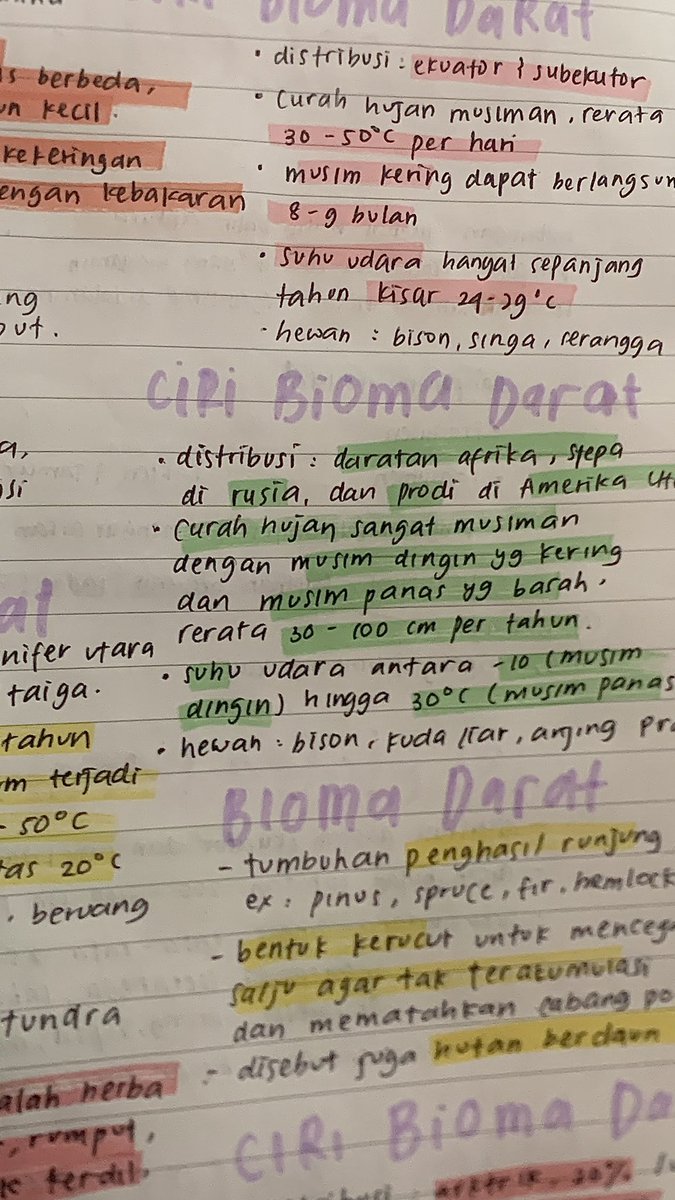 Bioma Darat
s berbeda,
un kecil.
kekeringan
engan kebakaran
ng
out.
• distribusi : ekuator & subekutor
• curah hujan musiman, rerata
30 - 50°C per hari
• musim kering dapat berlangsun
8-9 bulan
• suhu udara hangat sepanjang
tahun kisar 24-29°C
• hewan : bison, singa, serangga
CIRI BIOMA Darat
a,
si
• distribusi : daratan afrika, stepa
di rusia, dan prodi di Amerika Uta
• curah hujan sangat musiman
dengan musim dingin yg kering
dan musim panas yg basah.
rerata 30 - 100 cm per tahun.
• suhu udara antara -10 (musim
dingin) hingga 30°C (musim panas
• hewan : bison, kuda liar, anjing pr
at
nifer utara
taiga.
tahun
m terjadi
- 50°C
tas 20°C
, beruang
tundra
alah herba
, rumput,
terdil.
BIOMA Darat
- tumbuhan penghasil runjung
ex : pinus, spruce, fir, hemlock
- bentuk kerucut untuk menceg
salju agar tak terakumulasi
dan mematahkan cabang po
- disebut juga hutan berdaun
CIRI BIOMA Da